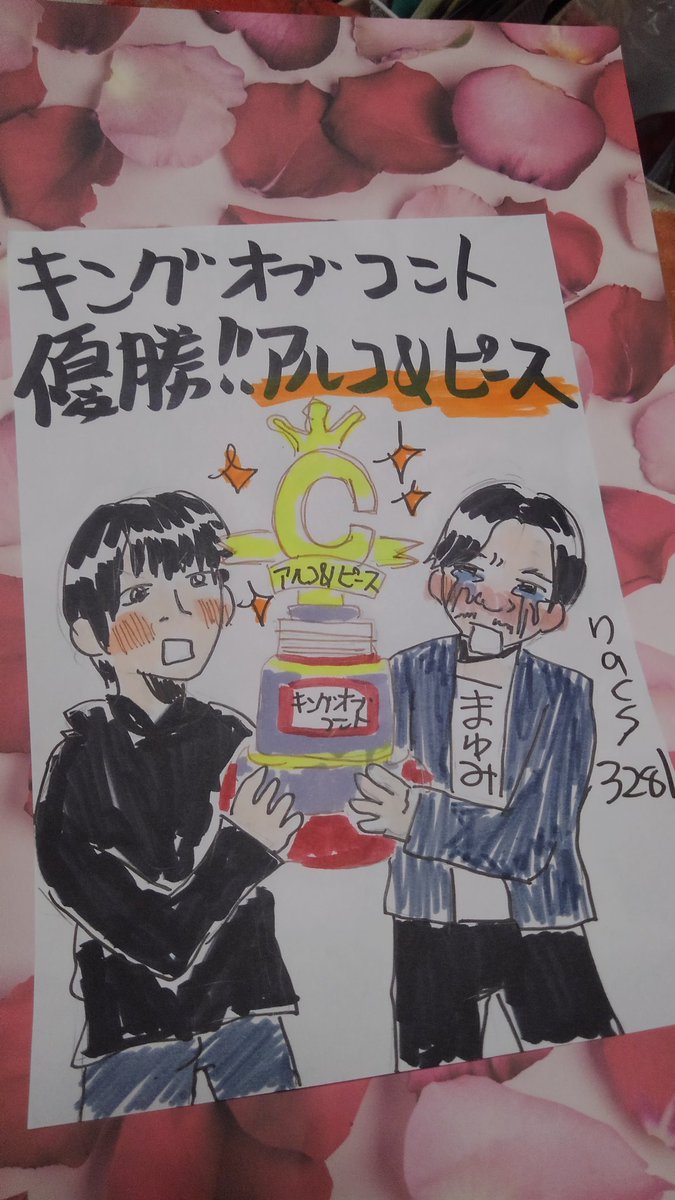 キングオブコント
優勝!!アルコ&ピース
C
アルコ&ピース
キングオブ
コント
まゆみ
nacs
3281